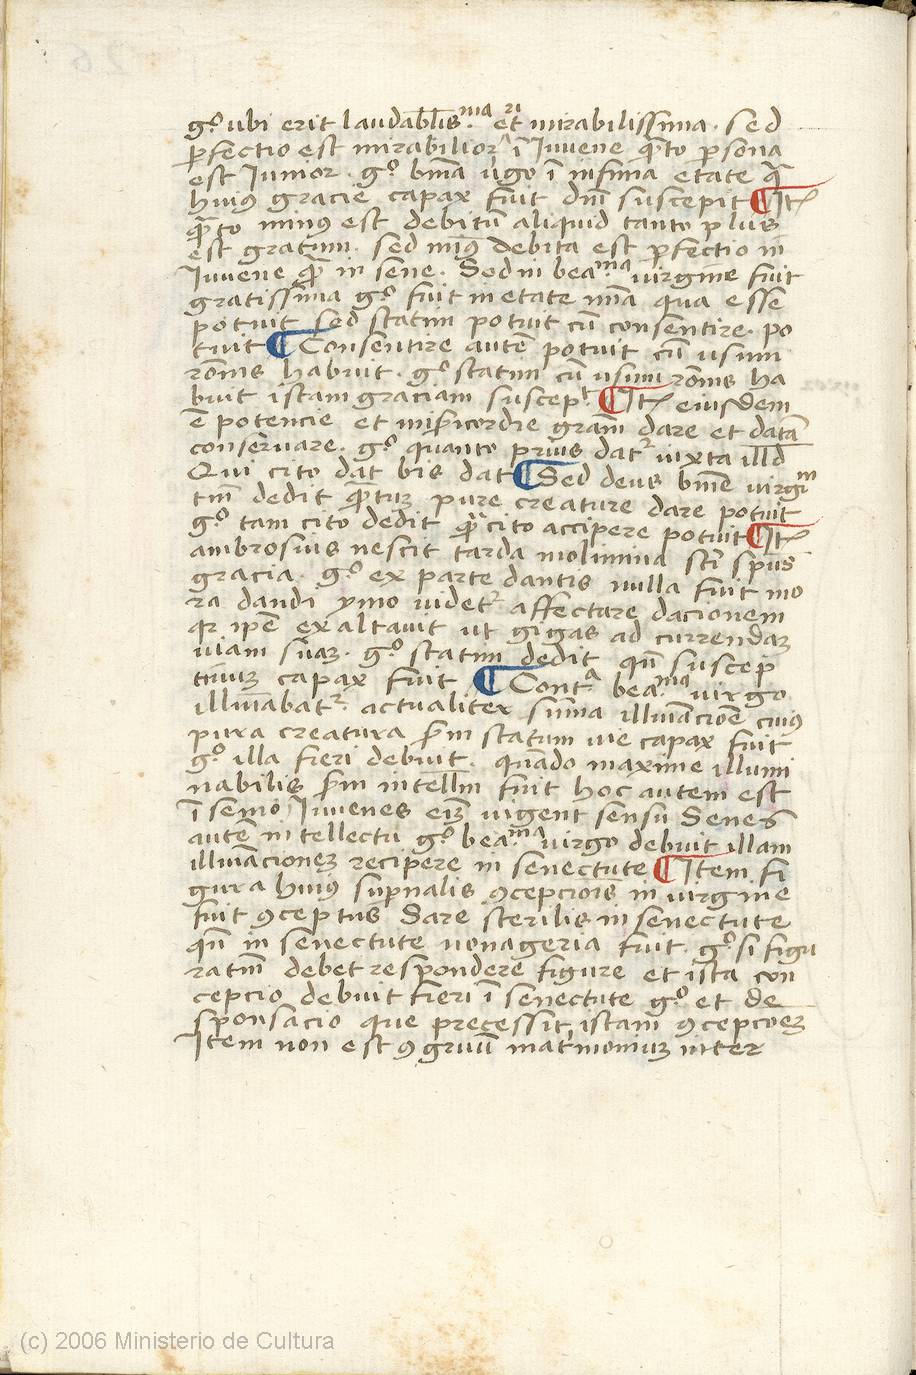 g.º ubi erit laudabl'is.ma et mirabilissima. sed
ꝑfectio est mirabilior ī Iuuene qͣto ꝑsona
est Iunior. g.º btā ūgo ī infima etate qͣ
huiꝰ gracie capax fuit dn̄i suscepit ¶ Itꝭ
qͣto minꝰ est debitū aliquid tanto plus
est gratum. sed minꝰ debita est ꝑfectio in
Iuuene qͣ in sene. Sed in bea.ma virgine fuit
gratissīma g.º fuit in etate mīa qua esse
potuit sed statim potuit cū consentire. po
tuit ¶ Consentire autē potuit cū usum
rōnis habuit. g.º statim cū usum rōnis ha
buit istam graciam suscep.t ¶ Itꝭ eiusdem
ē potencie et mīsericordie grām dare et datā
conseruare. g.º quanto prius datr̄ iuxta illd̄
Qui cito dat bis dat ¶ Sed deus btē virgīni
tm̄ dedit qͣtuꝫ pure creature dare potuit
g.º tam cito dedit qͣ cito accipere potuit ¶ Itꝭ
ambrosius nescit tarda molimina sct̄i sp̄us
gracia. g.º ex parte dantis nulla fuit mo
ra dandi ymo uidetr̄ affectare dacionem
qr ip̄e exaltauit ut gigas ad currendaꝫ
uiam suāꝫ. g.º statim dedit qn̄ suscep
tiuuꝫ capax fuit ¶ Cont.ª bea.ma uirgo
illuīabatr̄ actualiter summa illuīacioē cuiꝰ
pura creatura ẜm statum uie capax fuit
g.º illa fieri debuit. quādo maxime illumi
nabilis ẜm intell'm fuit hoc autem est
ī senio Iuuenes eīꝫ uigent sensu Senes
autē intellectu g.º bea.ma uirgo debuit illam
illuīacioneꝫ recipere in senectute ¶ Item fi
gura huiꝰ supnalis ꝯcepciōis in uirgine
fuit ꝯceptus Sare sterilis in senectute
qn̄ in senectute nonageria fuit. g.º si figu
ratm̄ debet respondere figure et ista con
cepcio debuit fieri ī senectute g.º et de
sponsacio que precessit istam ꝯcepcōeꝫ
Item non est ꝯgruū matrimoniuꝫ inter
(c) 2006 Ministerio de Cultura